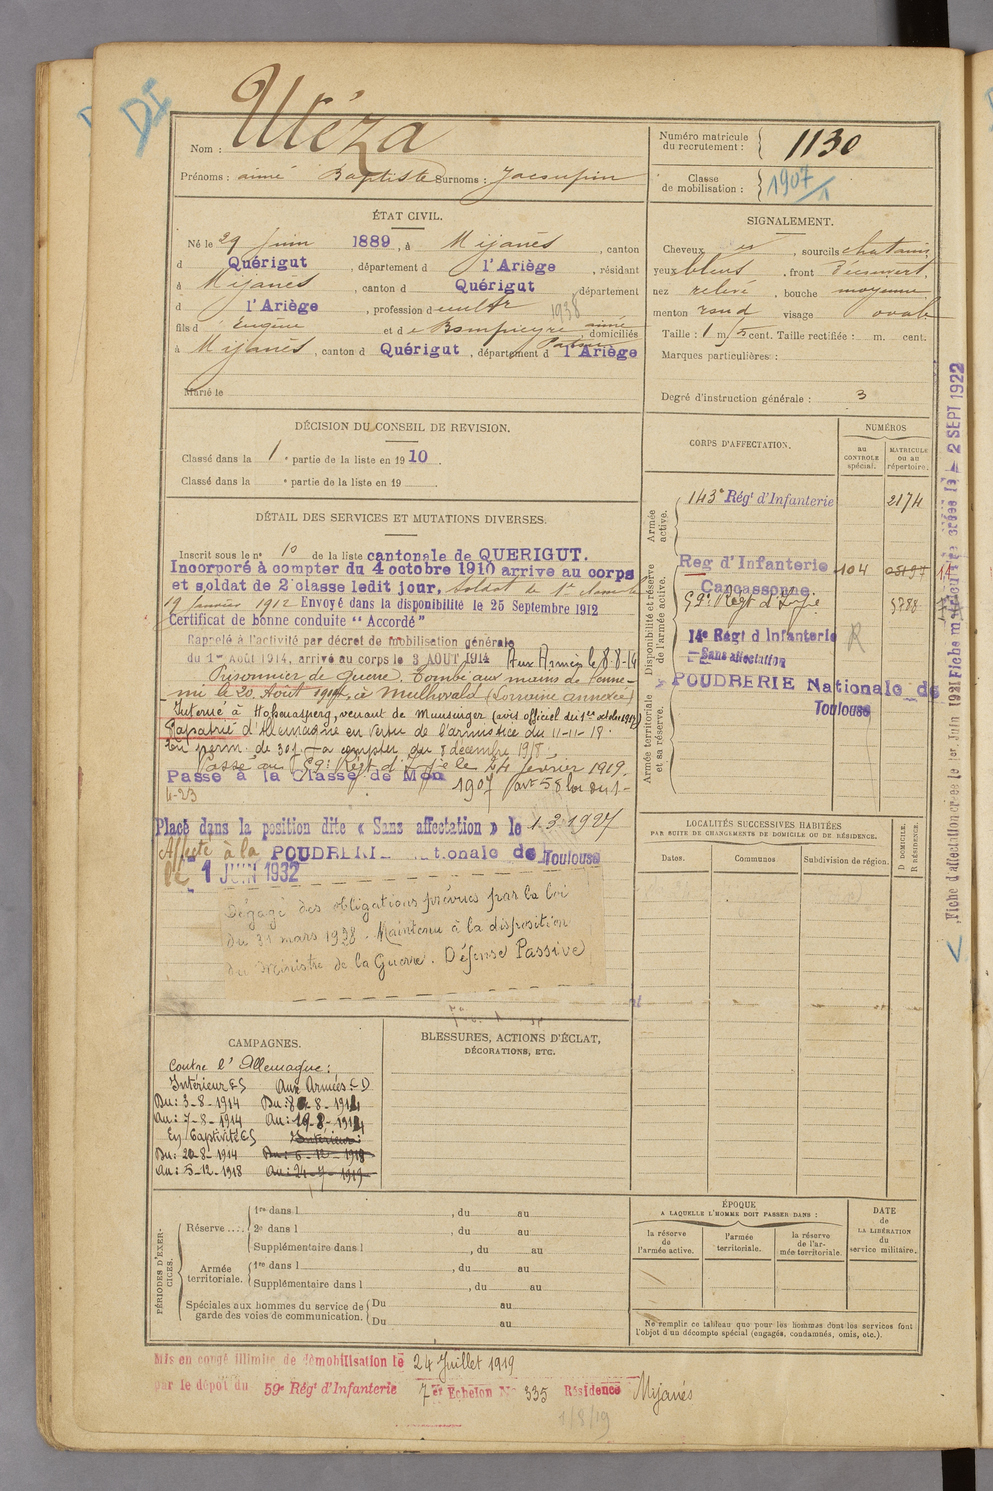 DI
Nom : Uléza
Prénoms : aimé Baptiste Surnoms :
Numéro matricule du recrutement : 1130
Classe de mobilisation : 1907/1
ÉTAT CIVIL.
Né le 29 Juin 1889, à Mijanès, canton
d Quérigut, département d l'Ariège, résidant
à Mijanès, canton d Quérigut, département
d l'Ariège, profession d cultr
1938
fils d Eugène et de Bompieyre aimé domiciliés
à Mijanès, canton d Quérigut, département d l'Ariège
Marié le
SIGNALEMENT.
Cheveux et, sourcils chatains
yeux bleus, front découvert
nez relevé, bouche moyenne
menton rond visage ovale
Taille : 1 m. cent. Taille rectifiée : m. cent.
Marques particulières :
Degré d'instruction générale : 3
DÉCISION DU CONSEIL DE REVISION.
Classé dans la 1e partie de la liste en 1910.
Classé dans la e partie de la liste en 19
DÉTAIL DES SERVICES ET MUTATIONS DIVERSES.
Inscrit sous le n° 10 de la liste cantonale de QUERIGUT.
Incorporé à compter du 4 octobre 1910 arrive au corps
et soldat de 2e classe ledit jour, Soldat de 1re classe le
19 Janvier 1912 Envoyé dans la disponibilité le 25 Septembre 1912
Certificat de bonne conduite "Accordé"
Rappelé à l'activité par décret de mobilisation générale
du 1er Août 1914, arrivé au corps le 3 AOUT 1914 Aux Armées le 8-8-14
Prisonnier de Guerre. Tombé aux mains de l'enne-
mi le 20 Août 1914, à Mulhwald (Lorraine annexée)
Interné à Hohenasperg, venant de Munsinger (avis officiel du 1er octobre 1917)
Rapatrié d'Allemagne en vertu de l'armistice du 11-11-18.
En perm. de 30 j. à compter du 8 décembre 1918.
Passé au 59e Régt d'Infie le 24 février 1919.
Passé à la Classe de Mob 1907 Art 58 loi du 1-
4-23
Placé dans la position dite « Sans affectation » le 1.3.1927
Affecté à la POUDRERIE Nationale de Toulouse
le 1 JUIN 1932
Dégagé des obligations prévues par la loi
du 31 mars 1928. Maintenu à la disposition
du Ministre de la Guerre. Défense Passive
CORPS D'AFFECTATION.
NUMÉROS
au CONTROLE spécial.
MATRICULE ou au répertoire.
Armée active.
143e Régt d'Infanterie 2174
Disponibilité et réserve de l'armée active.
Reg d'Infanterie 104
Carcassonne
59e Régt d'Infie 5788
14e Régt d Infanterie R
Sans affectation
POUDRERIE Nationale de
Toulouse
Armée territoriale et sa réserve.
Fiche d'affectation créée le 1er Juin 1921 Fiche matricule créée le 2 SEPT 1922
LOCALITÉS SUCCESSIVES HABITÉES
PAR SUITE DE CHANGEMENTS DE DOMICILE OU DE RÉSIDENCE.
Dates. Communes Subdivision de région.
D DOMICILE. R RÉSIDENCE.
CAMPAGNES.
Contre l'Allemagne :
Intérieur CS Aux Armées : CD
Du : 3-8-1914 Du : 8-8-1914
Au : 7-8-1914 Au : 19-8-1914
En Captivité CS Intérieur :
Du : 20-8-1914 Du : 6-12-1918
Au : 5-12-1918 Au : 24-7-1919
BLESSURES, ACTIONS D'ÉCLAT,
DÉCORATIONS, ETC.
PÉRIODES D'EXERCICES.
Réserve....
1re dans l , du au
2e dans l , du au
Supplémentaire dans l , du au
Armée territoriale.
1re dans l , du au
Supplémentaire dans l , du au
Spéciales aux hommes du service de garde des voies de communication.
Du au
Du au
ÉPOQUE
A LAQUELLE L'HOMME DOIT PASSER DANS :
la réserve de l'armée active.
l'armée territoriale.
la réserve de l'armée territoriale.
DATE DE LA LIBÉRATION du service militaire.
Ne remplir ce tableau que pour les hommes dont les services font
l'objet d'un décompte spécial (engagés, condamnés, omis, etc.).
Mis en congé illimité de démobilisation le 24 Juillet 1919
par le dépôt du 59e Régt d'Infanterie 7e Echelon No 335 Résidence Mijanès
1/8/19